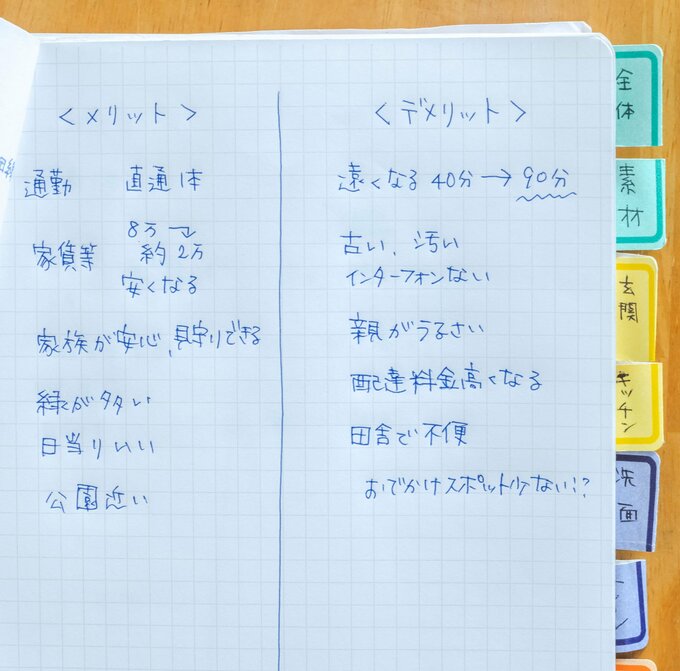 <メリット>
通勤 直通1本
8万→
家賃等 約2万
安くなる
家族が安心、見守りできる
緑が多い
日当りいい
公園近い
<デメリット>
遠くなる 40分→90分
古い、汚い
インターフォンない
親がうるさい
配達料金高くなる
田舎で不便
おでかけスポット少ない!?
全体
素材
玄関
キッチン
洗面